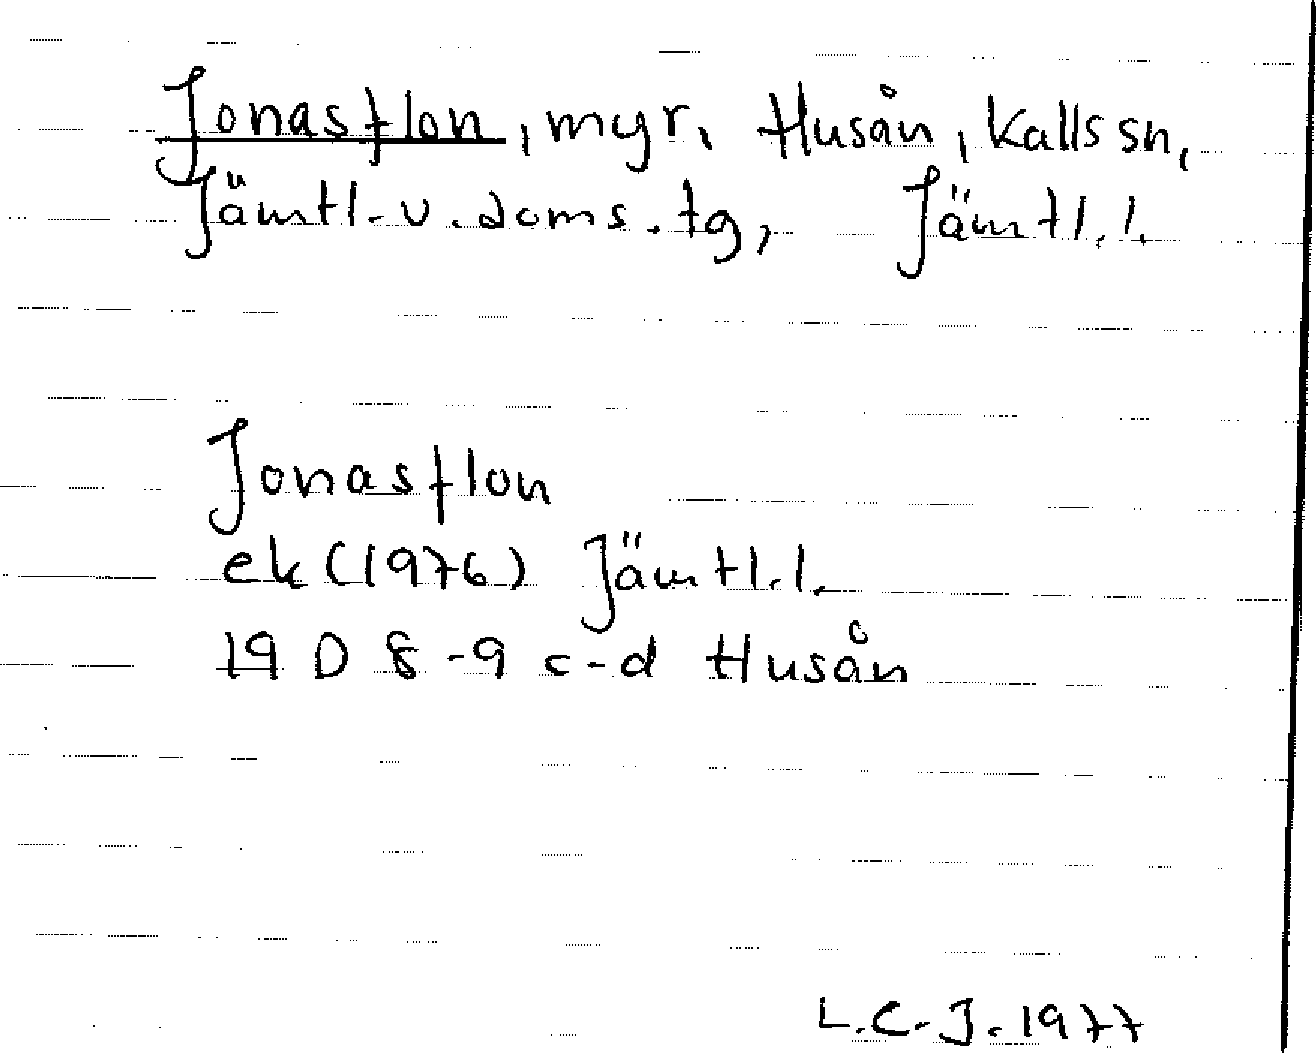 Jonasflon, myr, Husån, Kalls sn,
Jämtl. v. doms. tg, Jämtl. l.
Jonasflon
ek (1976) Jämtl. l.
19 D 8-9 c-d Husån
L.C-J. 1977